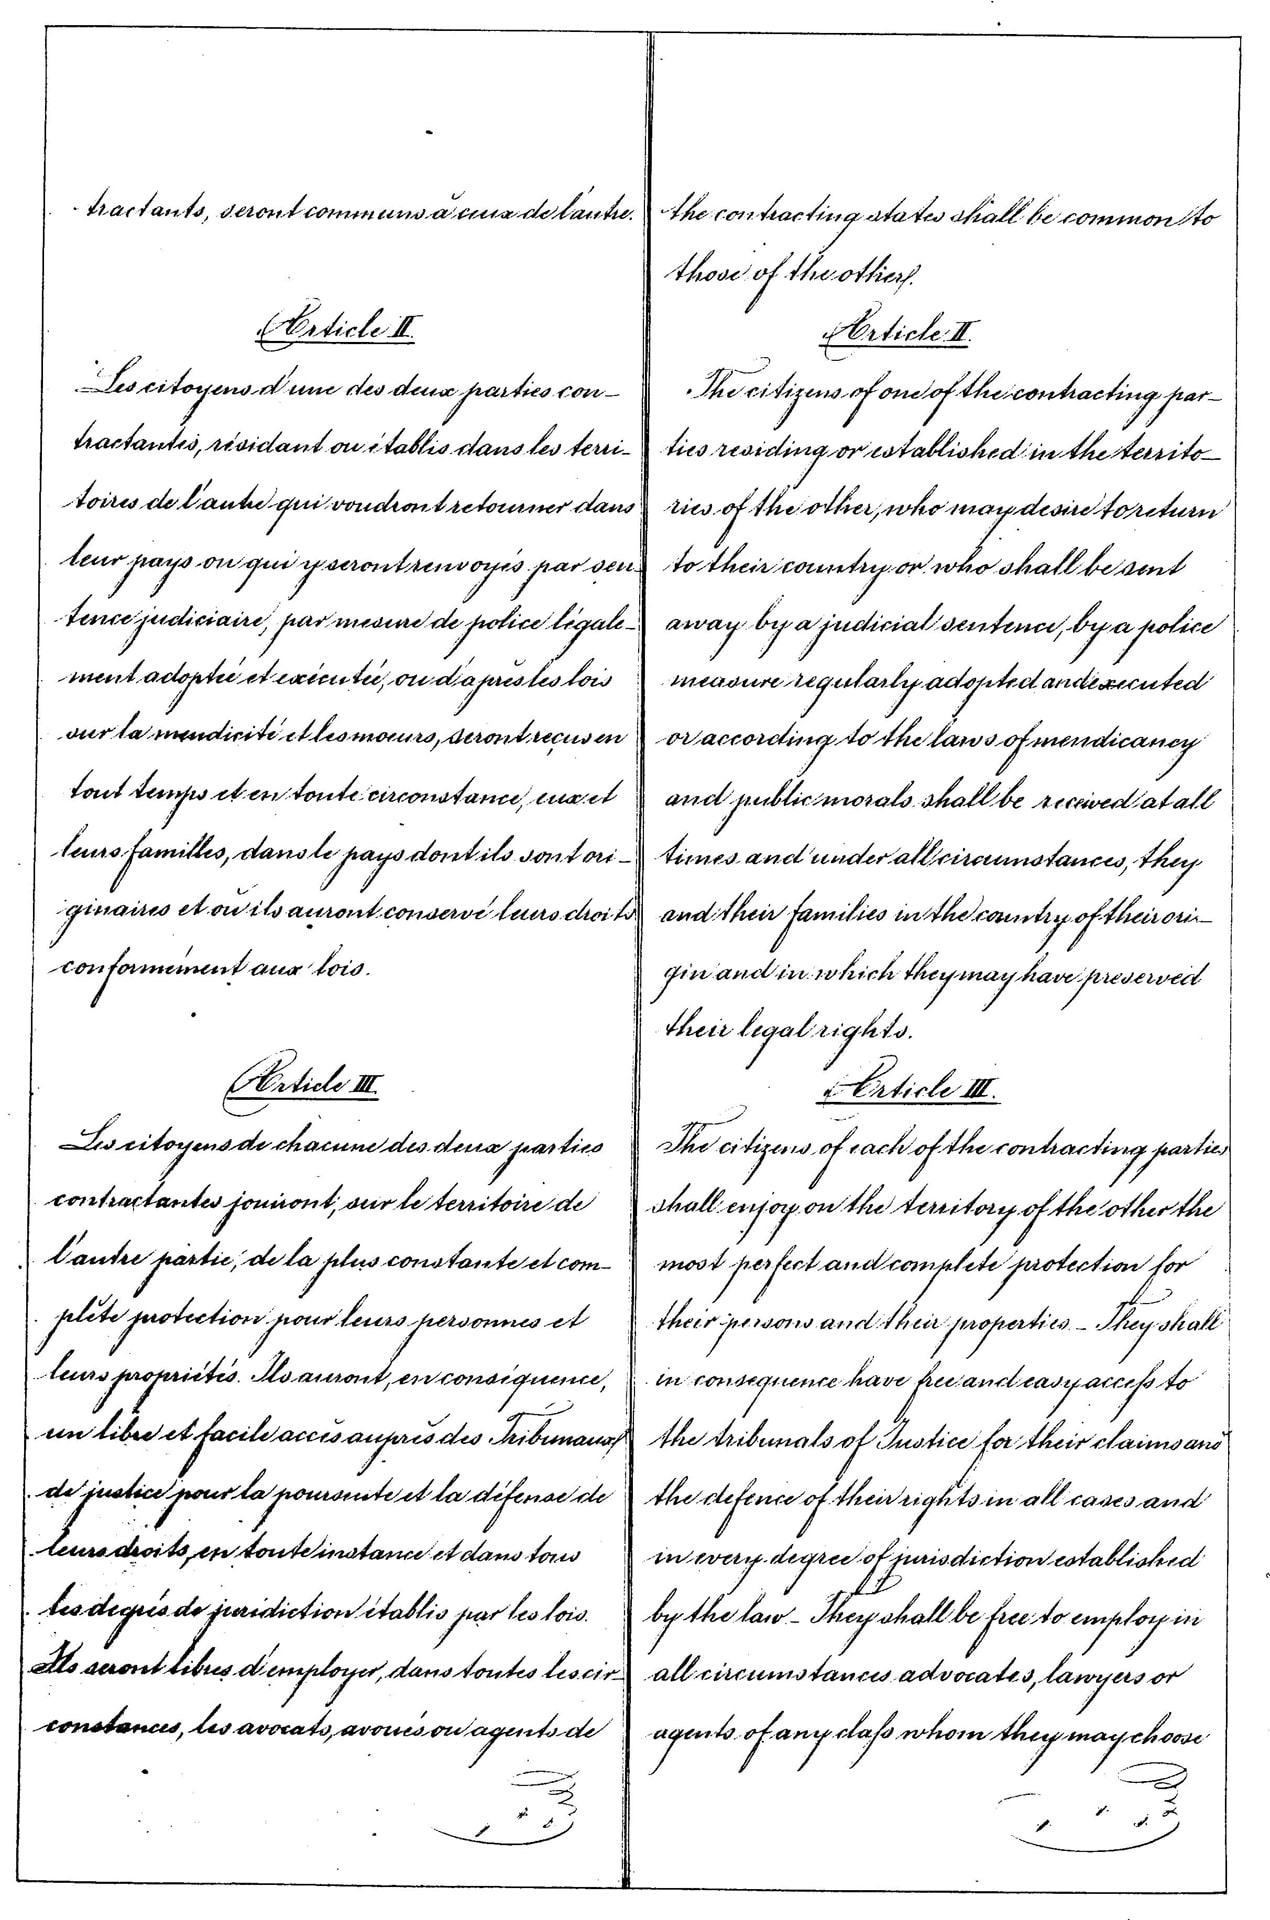 tractants, seront communs à ceux de l'autre.
Article II.
Les citoyens d'une des deux parties con-
tractantes, résidant ou établis dans les terri-
toires de l'autre qui voudront retourner dans
leur pays ou qui y seront renvoyés par sen-
tence judiciaire, par mesure de police légale-
ment adoptée et exécutée, ou d'après les lois
sur la mendicité et les mœurs, seront reçus en
tout temps et en toute circonstance, eux et
leurs familles, dans le pays dont ils sont ori-
ginaires et où ils auront conservé leurs droits
conformément aux lois.
Article III
Les citoyens de chacune des deux parties
contractantes jouiront, sur le territoire de
l'autre partie, de la plus constante et com-
plète protection pour leurs personnes et
leurs propriétés. Ils auront, en conséquence,
un libre et facile accès auprès des Tribunaux
de justice pour la poursuite et la défense de
leurs droits, en toute instance et dans tous
les degrés de juridiction établis par les lois.
Ils seront libres d'employer, dans toutes les cir-
constances, les avocats, avoués ou agents de
the contracting states shall be common to
those of the others.
Article II.
The citizens of one of the contracting par-
ties residing or established in the territo-
ries of the other, who may desire to return
to their country or who shall be sent
away by a judicial sentence, by a police
measure regularly adopted and executed
or according to the laws of mendicancy
and public morals shall be received at all
times and under all circumstances, they
and their families in the country of their ori-
gin and in which they may have preserved
their legal rights.
Article III.
The citizens of each of the contracting parties
shall enjoy on the territory of the other the
most perfect and complete protection for
their persons and their properties - They shall
in consequence have free and easy access to
the tribunals of Justice for their claims and
the defence of their rights in all cases and
in every degree of jurisdiction established
by the law - They shall be free to employ in
all circumstances advocates, lawyers or
agents of any class whom they may choose